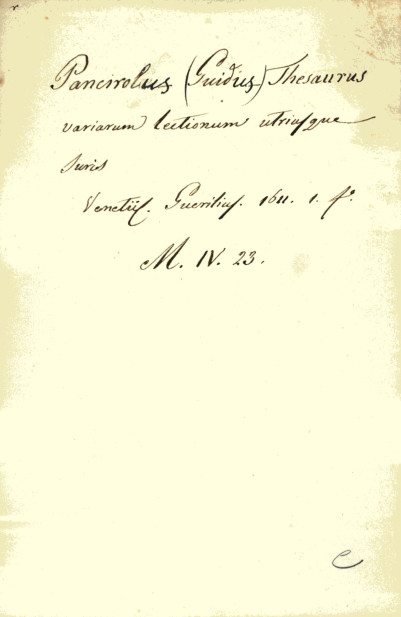 Pancirolus (Guidus) Thesaurus
variarum lectionum utriusque
Juris
Venetiis. Guerilius. 1611. 1. fo.
M. IV. 23.
C